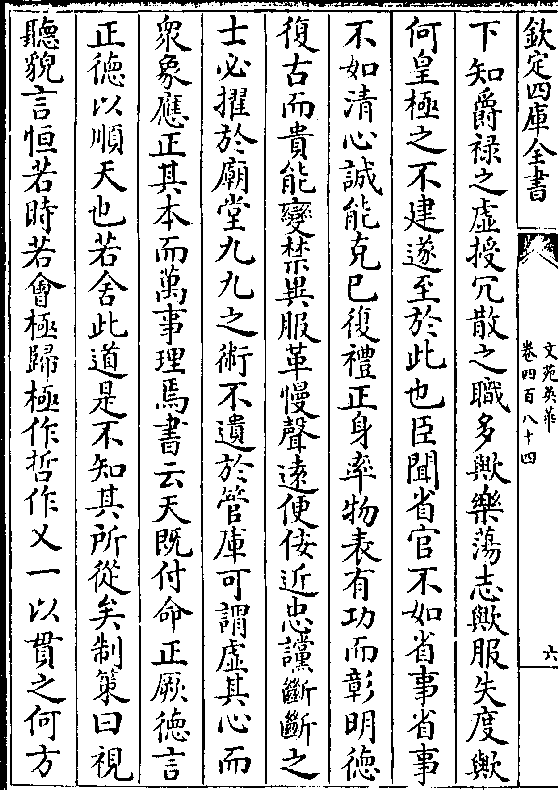 欽定四庫全書
文苑英華
卷四百八十四
六
下知爵禄之虚授冗散之職多歟樂蕩志歟服失度歟
何皇極之不建遂至於此也臣聞省官不如省事省事
不如清心誠能克己復禮正身率物表有功而彰明德
復古而貴能變禁異服革慢聲逺便佞近忠讜斷斷之
士必擢於廟堂九九之術不遺於管庫可謂虚其心而
衆象應正其本而萬事理焉書云天既付命正厥德言
正德以順天也若舍此道是不知其所從矣制策曰視
聽貌言恒若時若會極歸極作哲作乂一以貫之何方